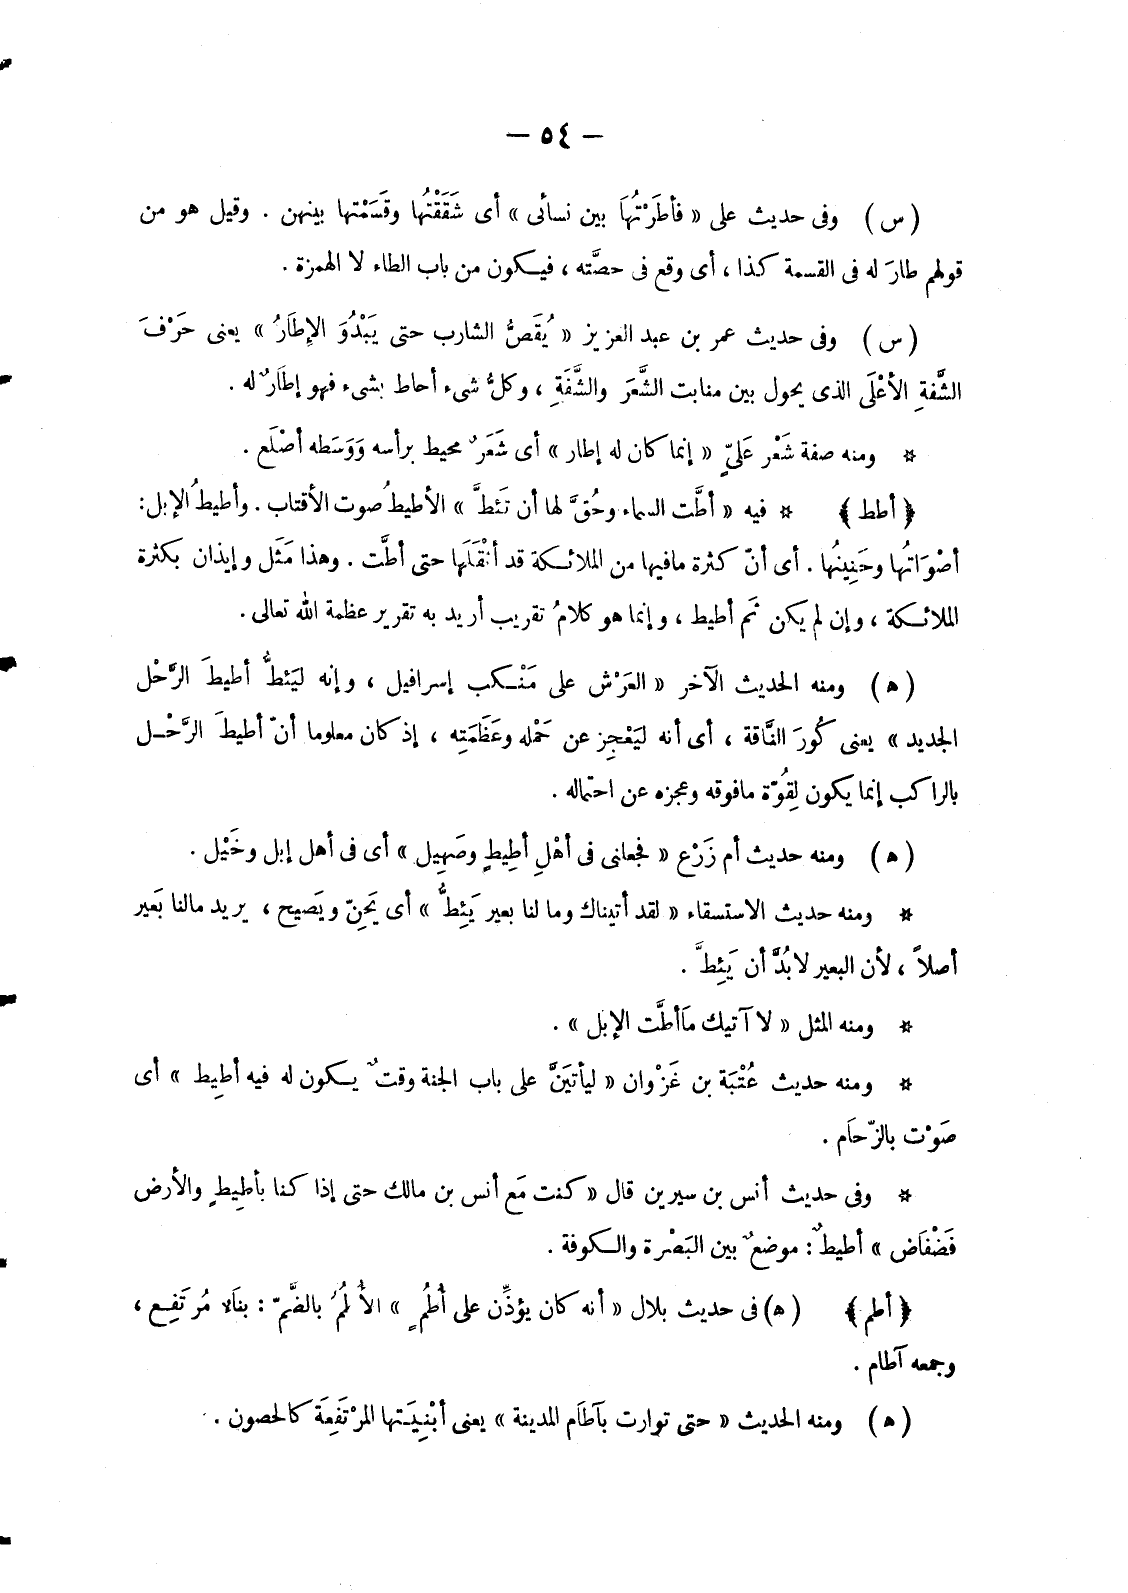 — ٥٤ —
( س ) وفى حديث على « فأطَرْتُهَا بين نسائى » أى شَقَقْتُها وقَسَمْتها بينهن . وقيل هو من
قولهم طارَ له فى القسمة كذا ، أى وقع فى حصَّته ، فيكون من باب الطاء لا الهمزة .
( س ) وفى حديث عمر بن عبد العزيز « يُقَصُّ الشارب حتى يَبْدُوَ الإِطَارُ » يعنى حَرْفَ
الشَّفةِ الأعْلَى الذى يحول بين منابت الشَّعَر والشَّفَةِ ، وكلُّ شىء أحاط بشىء فهو إطَارٌ له .
* ومنه صفة شَعْر عَلىّ « إنما كان له إطار » أى شَعَرٌ محيط برأسه وَوَسَطه أصْلَع .
﴿ أطط ﴾ * فيه « أطَّت السماء وحُقَّ لها أن تَئطَّ » الأطيطُ صوت الأقتاب . وأطيطُ الإبل :
أصْوَاتُها وحَنِينُها . أى أنّ كثرة مافيها من الملائكة قد أثْقَلَها حتى أطَّت . وهذا مَثَل وإيذان بكثرة
الملائكة ، وإن لم يكن ثَم أطيط ، وإنما هو كلامُ تقريب أريد به تقرير عظمة الله تعالى .
( ه ) ومنه الحديث الآخر « العَرْش على مَنْكب إسرافيل ، وإنه ليَئطُّ أطيطَ الرَّحْل
الجديد » يعنى كُورَ النَّاقة ، أى أنه ليَعْجِز عن حَمْله وعَظَمَتِه ، إذ كان معلوما أنّ أطيطَ الرَّحْل
بالراكب إنما يكون لِقُوّة مافوقه وعجزه عن احتماله .
( ه ) ومنه حديث أم زَرْع « فجعلنى فى أهْلِ أطِيطٍ وصَهِيل » أى فى أهل إبل وخَيْل .
* ومنه حديث الاستسقاء « لقد أتيناك وما لنا بعير يَئِطُّ » أى يَحِنّ ويَصيح ، يريد مالنا بَعير
أصلاً ، لأن البعير لابُدَّ أن يَئِطَّ .
* ومنه المثل « لا آتيك مَاأطَّت الإبل » .
* ومنه حديث عُتْبَة بن غَزْوان « ليأتيَنَّ على باب الجنة وقتٌ يكون له فيه أطِيط » أى
صَوْت بالزّحَام .
* وفى حديث أنس بن سيرين قال « كنت مَع أنس بن مالك حتى إذا كنا بأطِيطٍ والأرض
فَضْفَاض » أطيطٌ : موضعٌ بين البَصْرة والكوفة .
﴿ أطم ﴾ ( ه ) فى حديث بلال « أنه كان يؤذِّن على أُطُمٍ » الأُطُمُ بالضَّمّ : بنَاء مُرتَفِع ،
وجمعه آطام .
( ه ) ومنه الحديث « حتى توارت بآطَام المدينة » يعنى أبْنِيَتها المرْتَفِعَة كالحصون .